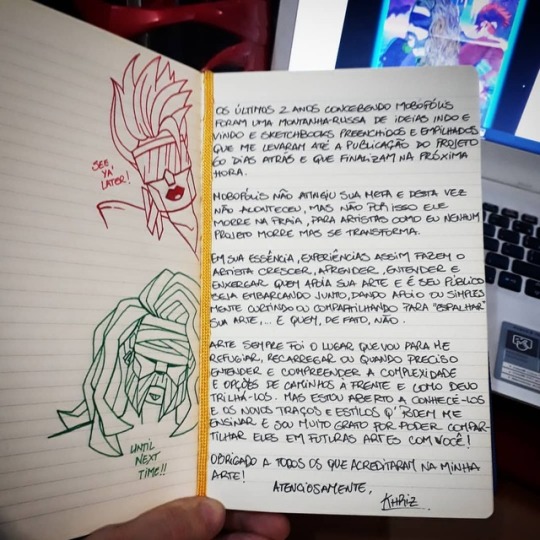 SEE,
YA
LATER!
UNTIL
NEXT
TIME!!
OS ÚLTIMOS 2 ANOS CONCEBENDO MOBÓPOLIS
FORAM UMA MONTANHA-RUSSA DE IDEIAS INDO E
VINDO E SKETCHBOOKS PREENCHIDOS E EMPILHADOS
QUE ME LEVARAM ATÉ A PUBLICAÇÃO DO PROJETO
60 DIAS ATRÁS E QUE FINALIZAM NA PRÓXIMA
HORA.
MOBÓPOLIS NÃO ATINGIU SUA META E DESTA VEZ
NÃO ACONTECEU, MAS NÃO POR ISSO ELE
MORRE NA PRAIA, PARA ARTISTAS COMO EU NENHUM
PROJETO MORRE MAS SE TRANSFORMA.
EM SUA ESSÊNCIA, EXPERIÊNCIAS ASSIM FAZEM O
ARTISTA CRESCER, APRENDER, ENTENDER E
ENXERGAR QUEM APOIA SUA ARTE E É SEU PÚBLICO
SEJA EMBARCANDO JUNTO, DANDO APOIO OU SIMPLES
MENTE CURTINDO OU COMPARTILHANDO PARA "ESPALHAR"
SUA ARTE,... E QUEM, DE FATO, NÃO.
ARTE SEMPRE FOI O LUGAR QUE VOU PARA ME
REFUGIAR, RECARREGAR OU QUANDO PRECISO
ENTENDER E COMPREENDER A COMPLEXIDADE
E OPÇÕES DE CAMINHOS À FRENTE E COMO DEVO
TRILHÁ-LOS. MAS ESTOU ABERTO A CONHECÊ-LOS
E OS NOVOS TRAÇOS E ESTILOS Q' PODEM ME
ENSINAR E SOU MUITO GRATO POR PODER COMPAR-
TILHAR ELES EM FUTURAS ARTES COM VOCÊ!
OBRIGADO A TODOS OS QUE ACREDITARAM NA MINHA
ARTE!
ATENCIOSAMENTE,
KHRIZ